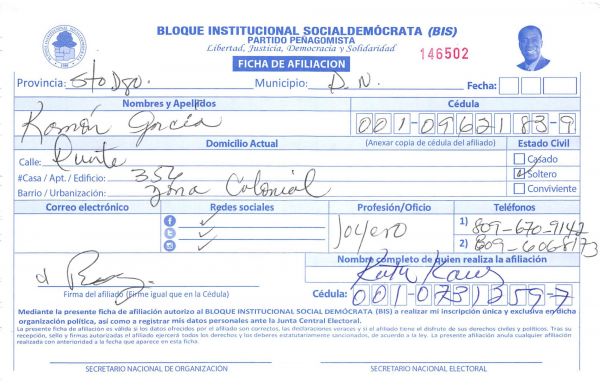 BLOQUE INSTITUCIONAL SOCIALDEMÓCRATA (BIS)
PARTIDO PEÑAGOMISTA
Libertad, Justicia, Democracia y Solidaridad
146502
FICHA DE AFILIACION
Provincia: Sto Dgo. Municipio: D.N. Fecha:
Nombres y Apellidos Cédula
Ramón García 001-0962183-9
Domicilio Actual (Anexar copia de cédula del afiliado) Estado Civil
Calle: Duarte Casado
#Casa / Apt. / Edificio: 356 Soltero
Barrio / Urbanización: Zona Colonial Conviviente
Correo electrónico Redes sociales Profesión/Oficio Teléfonos
Joyero 1) 809-670-9142
2) 809-606-8173
Nombre completo de quien realiza la afiliación
Firma del afiliado (Firme igual que en la Cédula) Cédula: 001-0731259-7
Mediante la presente ficha de afiliación autorizo al BLOQUE INSTITUCIONAL SOCIAL DEMÓCRATA (BIS) a realizar mi inscripción única y exclusiva en dicha
organización política, así como a registrar mis datos personales ante la Junta Central Electoral.
La presente ficha de afiliación es válida si los datos ofrecidos por el afiliado son correctos, las declaraciones veraces y si el afiliado tiene el disfrute de sus derechos civiles y políticos. Tras su
recepción, sello y firmas autorizadas el afiliado ejercerá todos los derechos y los deberes estatutariamente sancionados, de acuerdo a la ley. La presente afiliación anula cualquier afiliación
realizada con anterioridad a la fecha que aparece en esta ficha.
SECRETARIO NACIONAL DE ORGANIZACIÓN SECRETARIO NACIONAL ELECTORAL